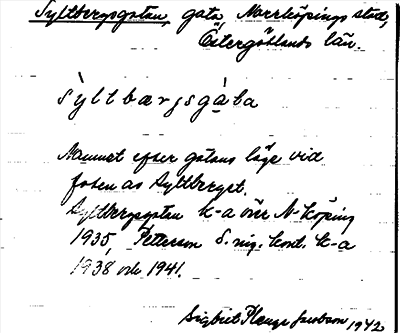 Syltbergsgatan, gata, Norrköpings stad,
Östergötlands län.
sỳltbærjsgàta
Namnet efter gatans läge vid
foten av Syltberget.
Syltbergsgatan k-a över N-köping
1935, Petterson S. nyg. kont. k-a
1938 och 1941.
Sigbrit Plænge Jacobson 1942